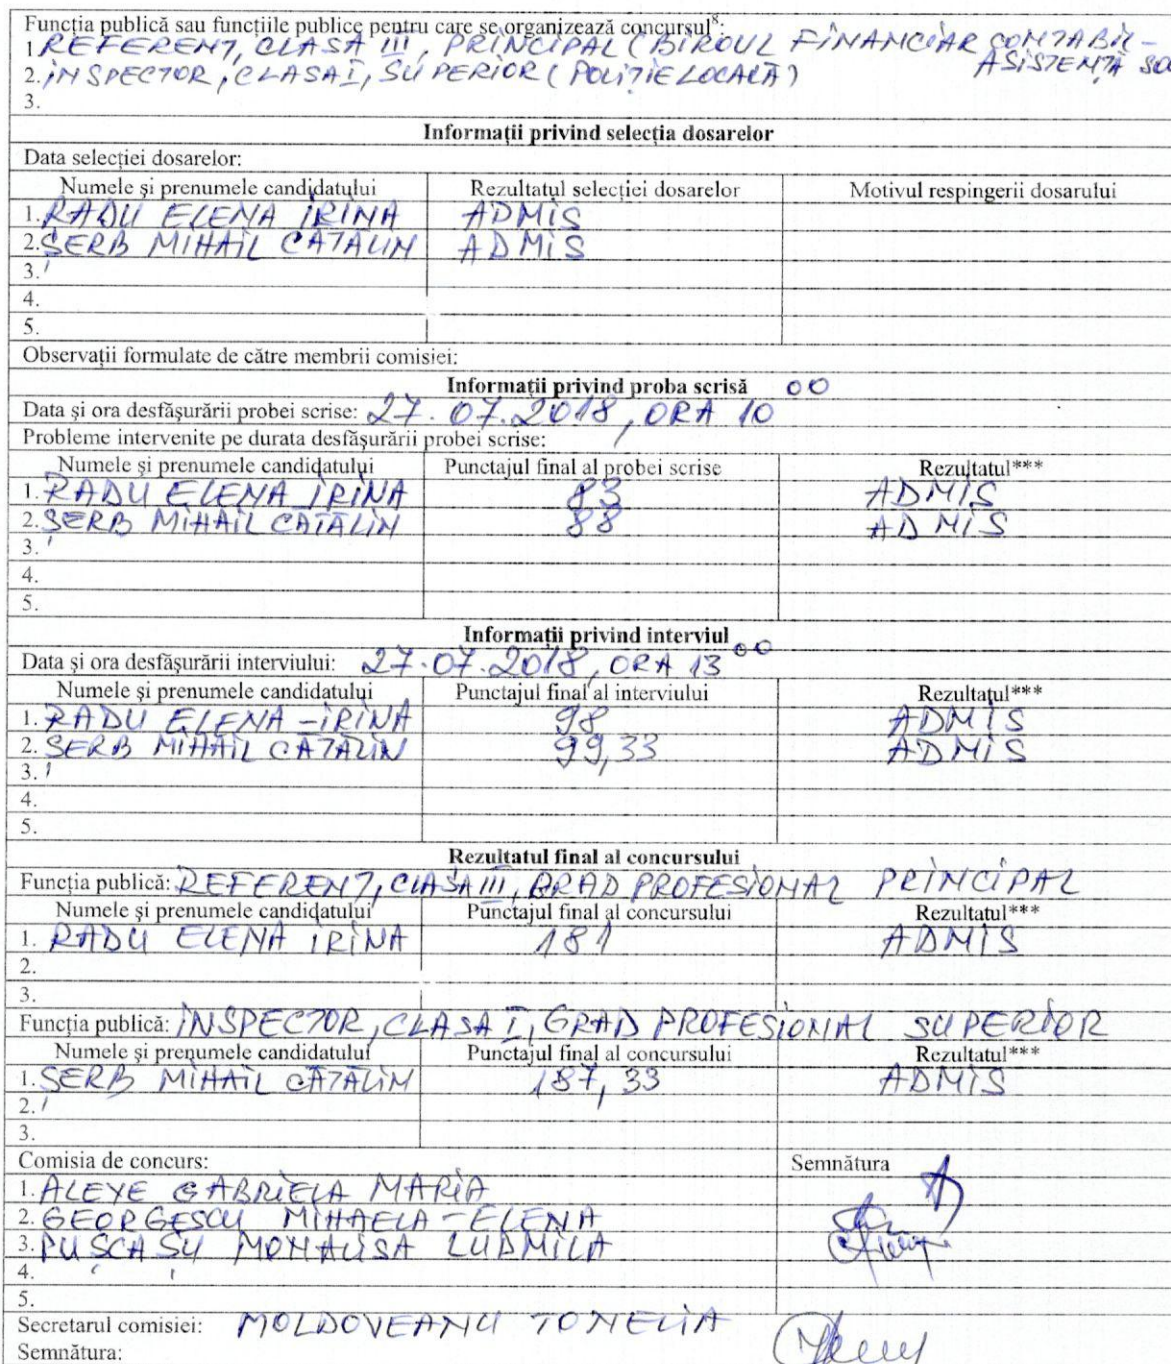 Funcția publică sau funcțiile publice pentru care se organizează concursul⁸:
1. REFERENT, CLASA III, PRINCIPAL (BIROUL FINANCIAR CONTABIL-
ASISTENȚĂ SO
2. INSPECTOR, CLASA I, SUPERIOR (POLIȚIE LOCALĂ)
3.
Informații privind selecția dosarelor
Data selecției dosarelor:
Numele și prenumele candidatului Rezultatul selecției dosarelor Motivul respingerii dosarului
1. RADU ELENA IRINA ADMIS
2. ȘERB MIHAIL CĂTĂLIN ADMIS
3.
4.
5.
Observații formulate de către membrii comisiei:
Informații privind proba scrisă
Data și ora desfășurării probei scrise: 27.07.2018, ORA 10 00
Probleme intervenite pe durata desfășurării probei scrise:
Numele și prenumele candidatului Punctajul final al probei scrise Rezultatul***
1. RADU ELENA IRINA 83 ADMIS
2. ȘERB MIHAIL CĂTĂLIN 88 ADMIS
3.
4.
5.
Informații privind interviul
Data și ora desfășurării interviului: 27.07.2018, ORA 13 00
Numele și prenumele candidatului Punctajul final al interviului Rezultatul***
1. RADU ELENA-IRINA 98 ADMIS
2. ȘERB MIHAIL CĂTĂLIN 99,33 ADMIS
3.
4.
5.
Rezultatul final al concursului
Funcția publică: REFERENT, CLASA III, GRAD PROFESIONAL PRINCIPAL
Numele și prenumele candidatului Punctajul final al concursului Rezultatul***
1. RADU ELENA IRINA 181 ADMIS
2.
3.
Funcția publică: INSPECTOR, CLASA I, GRAD PROFESIONAL SUPERIOR
Numele și prenumele candidatului Punctajul final al concursului Rezultatul***
1. ȘERB MIHAIL CĂTĂLIN 187,33 ADMIS
2.
3.
Comisia de concurs: Semnătura
1. ALEXE GABRIELA MARIA
2. GEORGESCU MIHAELA-ELENA
3. PUȘCAȘU MONALISA LUDMILA
4.
5.
Secretarul comisiei: MOLDOVEANU TONELIA
Semnătura: